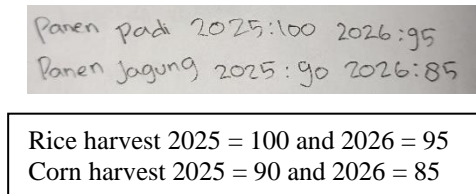 Panen padi 2025:100 2026:95
Panen Jagung 2025:90 2026:85
Rice harvest 2025 = 100 and 2026 = 95
Corn harvest 2025 = 90 and 2026 = 85